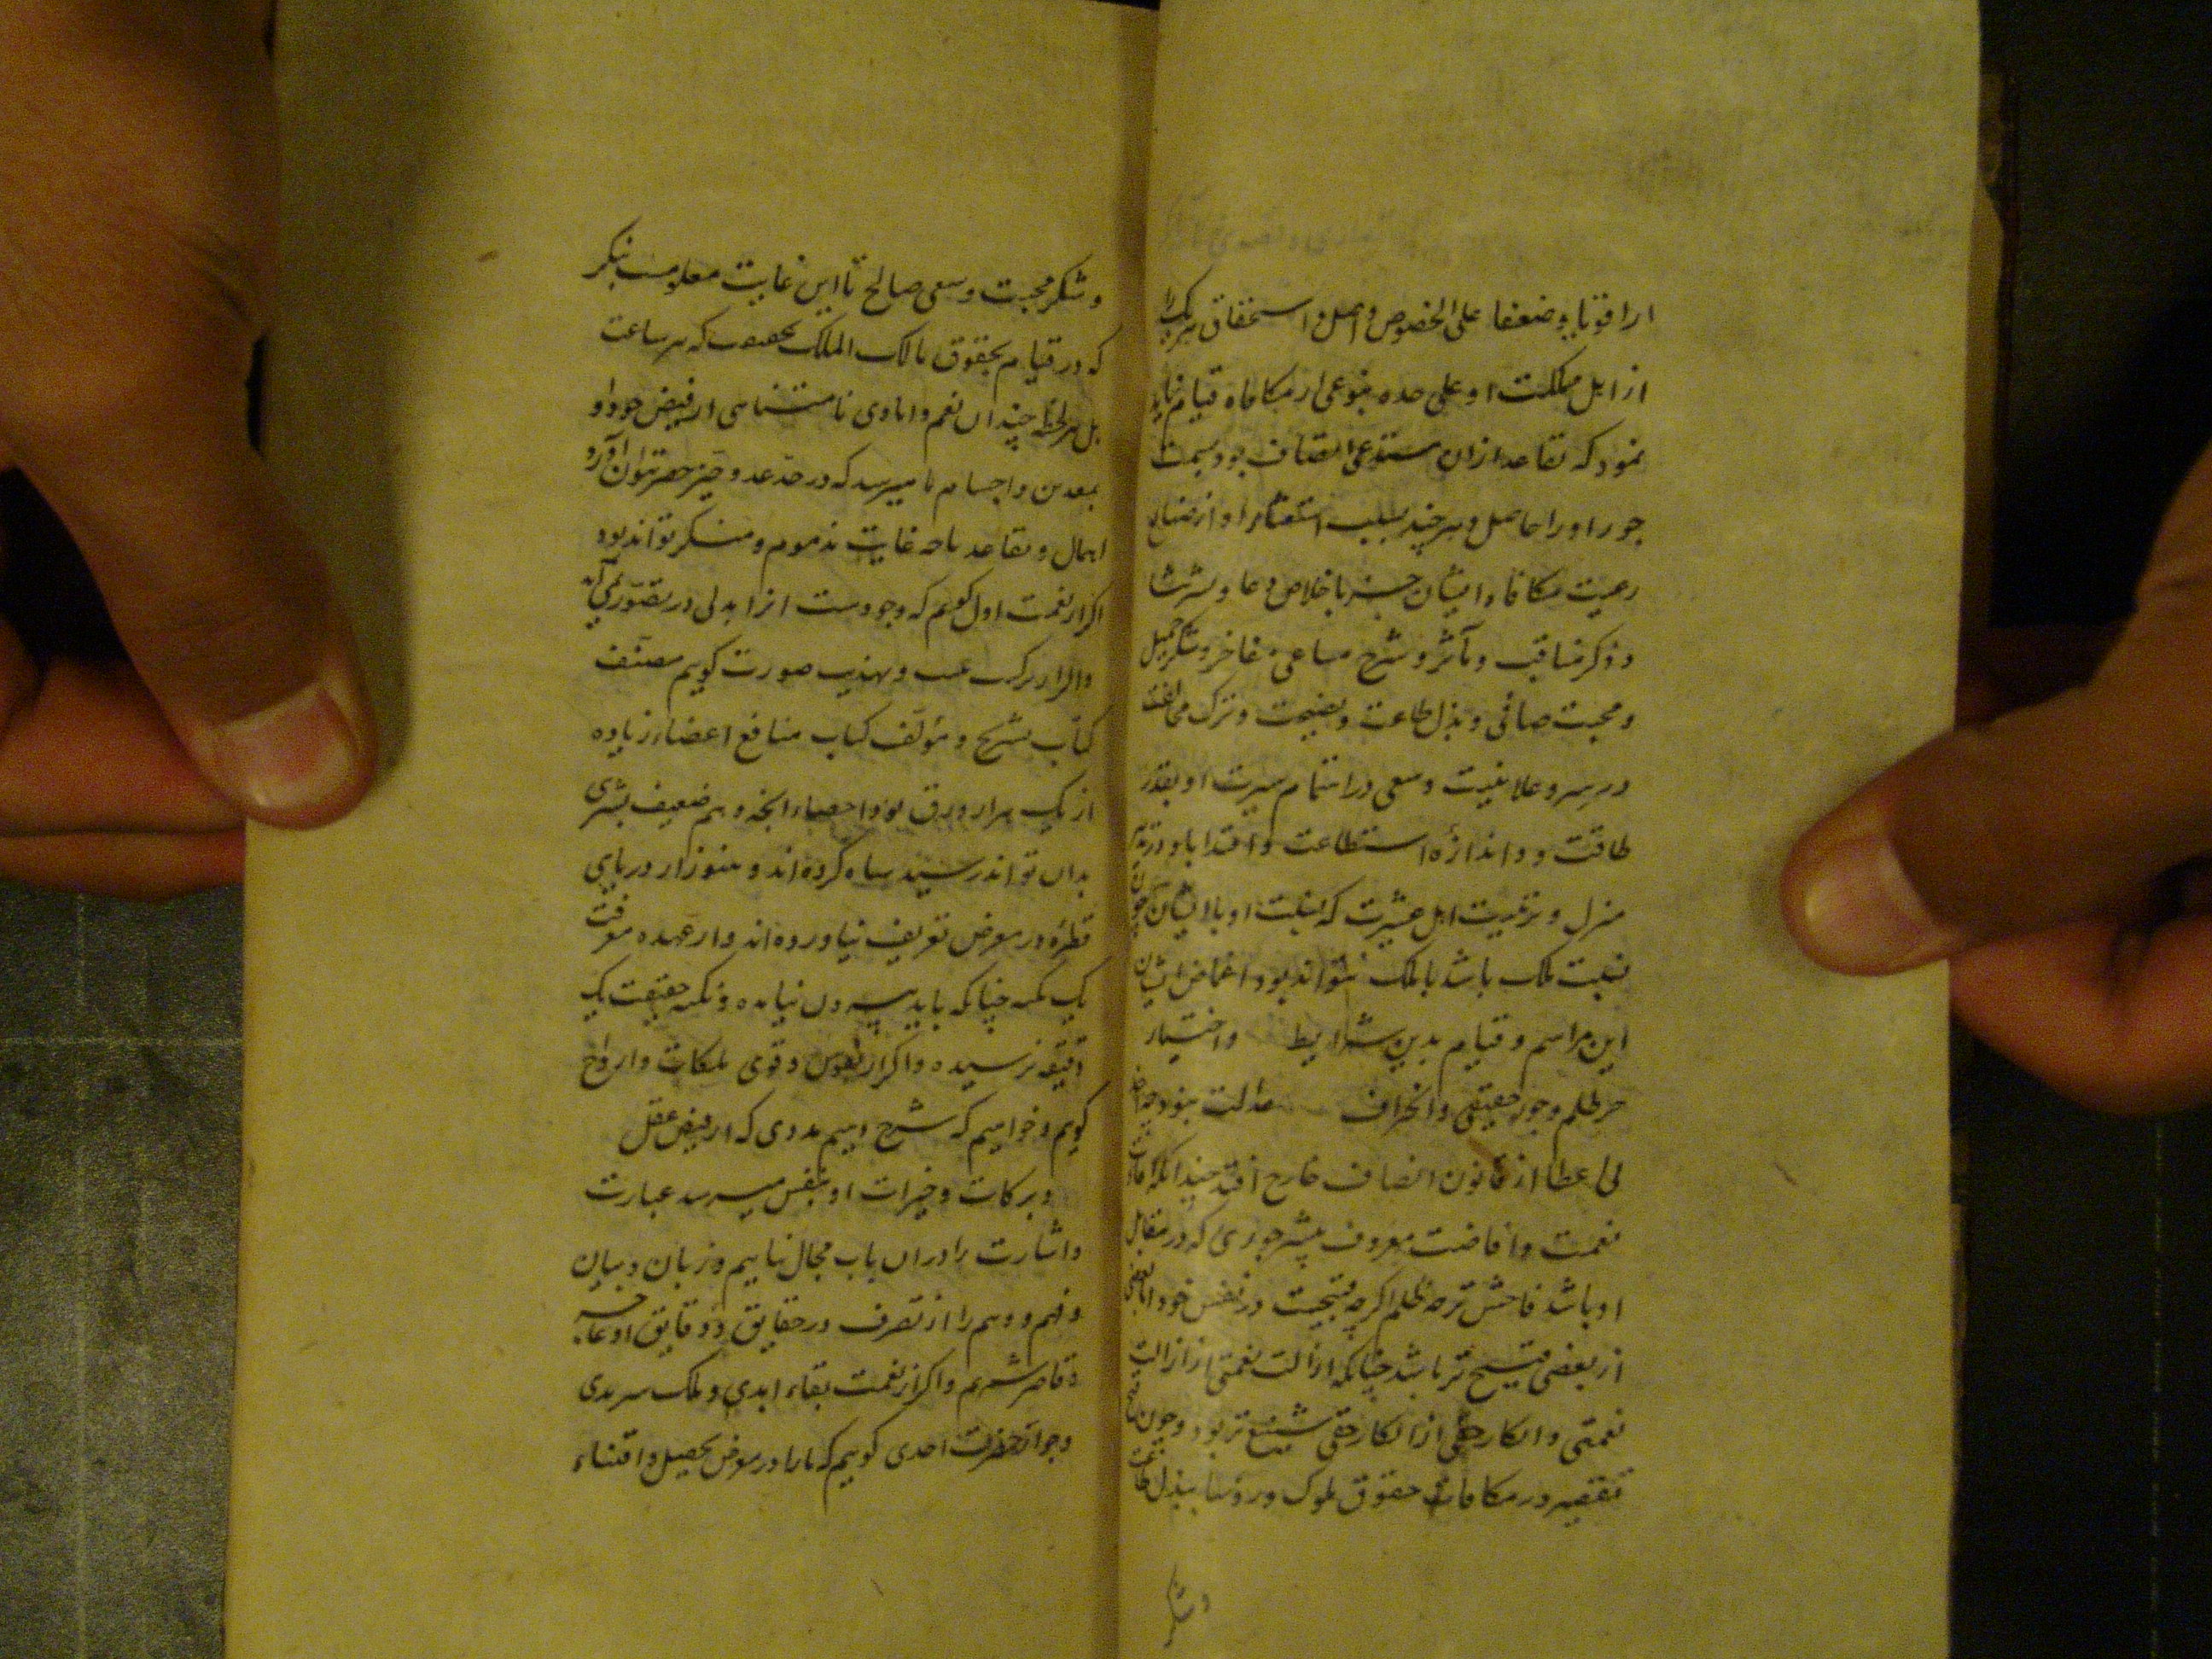 از اقویا و ضعفا علی الخصوص و اهل و استحقاق هر یک را
از اهل مملکت او علی حده بنوعی از مکافاه قیام نماید
نمود که تقاعد از ان مستدعی اتصاف بود بسمت
جور او را حاصل و هر چند بسبب استغناء او از صنایع
رعیت مکافاه ایشان جز باخلاص دعا و نشر ثنا
و ذکر مناقب و مآثر و شرح مساعی و مفاخر و شکر جمیل
و محبت صافی و بذل طاعت و نصیحت و ترک مخالفت
در سر و علانیت و سعی در اتمام سیرت او بقدر
طاقت و و اندازه استطاعت و اقتدا باو در تدبیر
منزل و ترتیب اهل عشیرت که نسبت او بایشان چون
نسبت ملک باشد با ملک نتواند بود اغماض ایشان
این مراسم و قیام بدین شرایط و اختیار
جز ظلم و جور حقیقی و انحراف عدالت نبود چه اخذ
بی اعطا از قانون انصاف خارج افتد چندانکه افاضت
نعمت و افاضت معروف بیشتر جوری که در مقابل
او باشد فاحش تر چه ظلم اگرچه قبیحست در نفس خود اما بعضی
از بعضی قبیح تر باشد چنانکه ازالت نعمتی از ازالت
نعمتی و انکار حقی از انکار حقی شنیع تر بود و چون قبح
تقصیر در مکافات حقوق ملوک و رؤسا ببذل طاعت
و شکر
و شکر محبت و سعی صالح تا این غایت معلومست بنکر
که در قیام بحقوق مالک الملک بحقیقت که هر ساعت
بل هر لحظه چندان نعم و ایادی نامتناهی از فیض جود او
بنفوس و اجسام ما میرسد که در حد عد و حیز حصر نتوان آورد
اهمال و تقاعد تا چه غایت مذموم و منکر تواند بود
اکر از نعمت اول کویم که وجودست انرا بدلی در تصور نمی آید
و اکر از ترکیب بنیت و تهذیب صورت کویم مصنف
کتاب تشریح و مؤلف کتاب منافع اعضا زیاده
از یک هزار ورق در احصاء انچه وهم ضعیف بشری
بدان تواند رسید سیاه کرده اند و هنوز از دریایی
قطره در معرض تعریف نیاورده اند و از عهده معرفت
یک نکته چنانکه باید بیرون نیامده و بکنه حقیقت یک
دقیقه نرسیده و اکر از نفوس و قوی و ملکات و ارواح
کویم و خواهیم که شرح دهیم مددی که از فیض عقل
و برکات و خیرات او بنفس میرسد عبارت
و اشارت را دران باب مجال نیابیم و زبان و بیان
و فهم و وهم را از تصرف در حقایق و دقایق او عاجز
و قاصر شمریم و اکر از نعمت بقاء ابدی و ملک سرمدی
و جوار حضرت احدی کوییم که ما را در معرض تحصیل و اقتناء